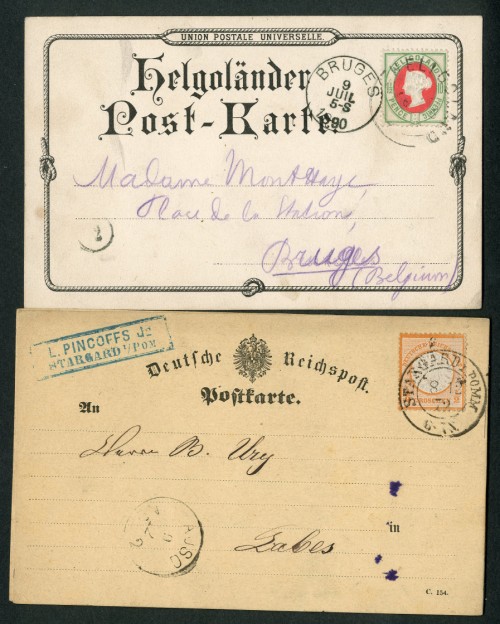 UNION POSTALE UNIVERSELLE.
Helgoländer
Post-Karte
BRUGES
9
JUIL
5-S
1890
HELIGOLAND
Madame Monthaye,
Place de la Station,
Bruges
(Belgium)
2
L. PINCOFFS Jc
STARGARD I/POM
Deutsche Reichspost.
Postkarte.
STARGARD I. POMM
8 12
72
6-7N.
An
Herrn B. Ury
in
Labes
AUSG
C. 154.